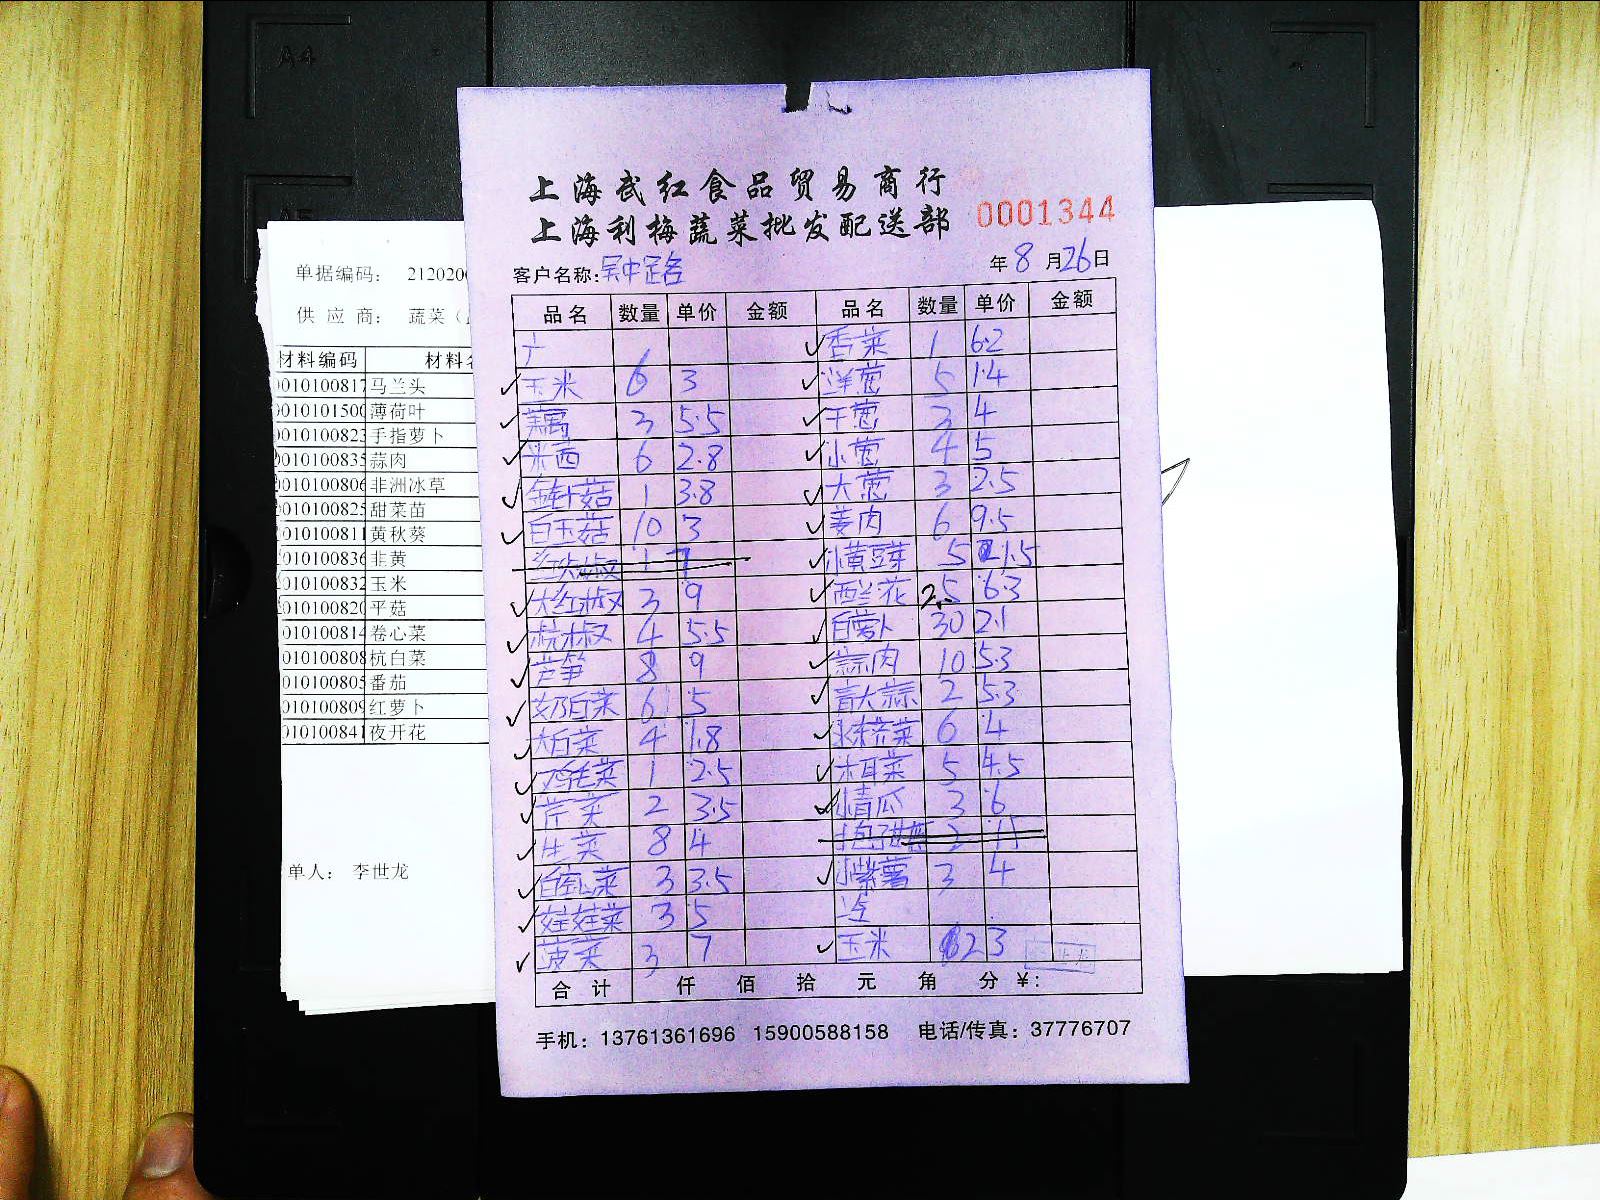 A4
A5
上海武红食品贸易商行
上海利梅蔬菜批发配送部
0001344
客户名称:
年 8 月 26 日
品名 数量 单价 金额 品名 数量 单价 金额
广
香菜 1 6.2
玉米 6 3
洋葱 5 1.4
藕 3 5.5
干葱 3 4
米西 6 2.8
小葱 4 5
金针菇 1 3.8
大葱 3 2.5
白玉菇 10 3
姜肉 6 9.5
1 7
小黄豆芽 5 1.5
大红椒 3 9
西兰花 2.5 6.3
杭椒 4 5.5
白萝卜 30 2.1
芦笋 8 9
蒜肉 10 5.3
奶白菜 6 5
青大蒜 2 5.3
大白菜 4 1.8
水榨菜 6 4
鸡毛菜 1 2.5
木耳菜 5 4.5
芹菜 2 3.5
小青瓜 3 6
生菜 8 4
3 3.5
小紫薯 3 4
娃娃菜 3 5
菠菜 3 7
玉米 12 3
合计 仟 佰 拾 元 角 分 ¥:
手机: 13761361696 15900588158 电话/传真: 37776707
单据编码: 212020
供应商: 蔬菜（
材料编码 材料
010100817 马兰头
0010101500 薄荷叶
010100823 手指萝卜
010100835 蒜肉
010100806 非洲冰草
010100825 甜菜苗
010100811 黄秋葵
010100836 韭黄
010100832 玉米
010100820 平菇
010100814 卷心菜
010100808 杭白菜
010100805 番茄
010100809 红萝卜
010100841 夜开花
单人: 李世龙